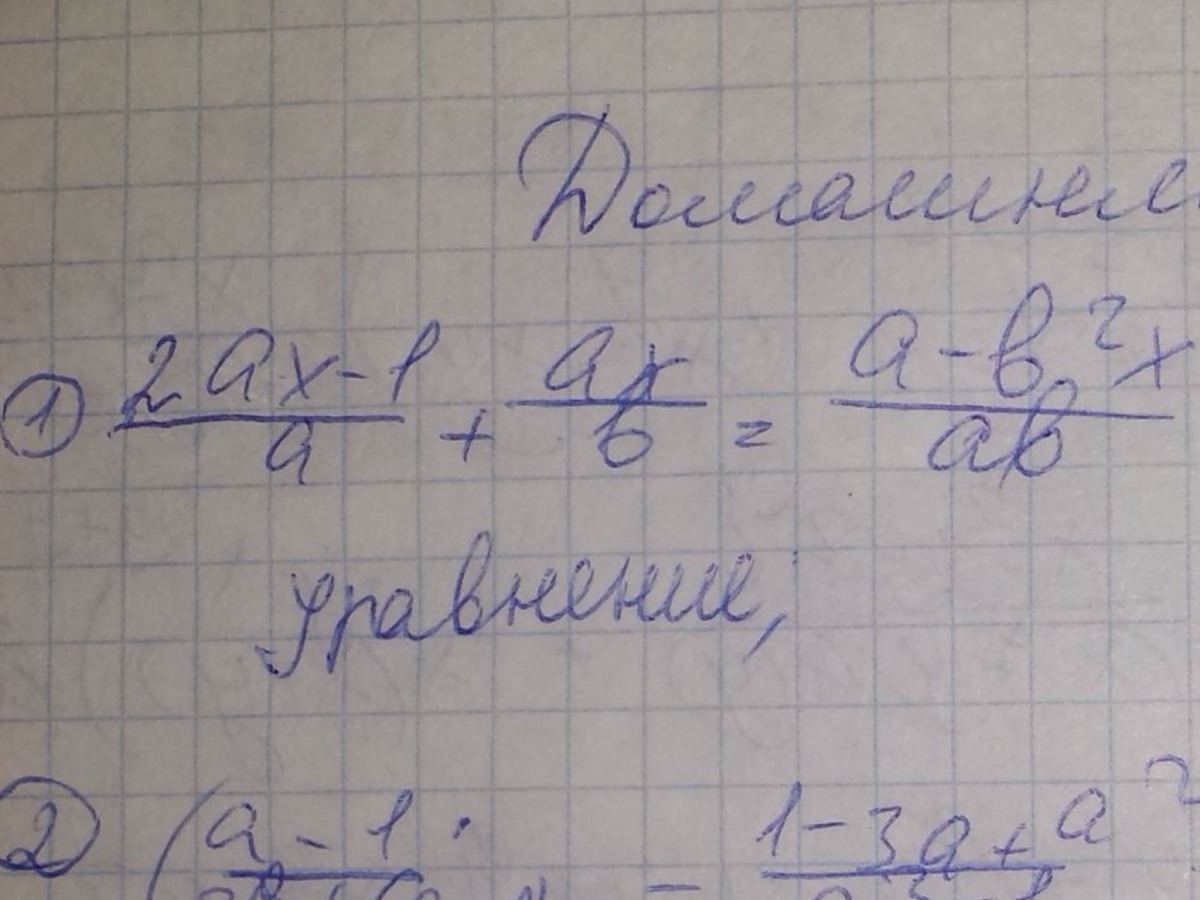 Домашнее
① (2ax-1)/a + ax/b = (a-b²x)/ab
уравнение,
② (a-1 - 1-3a+a²